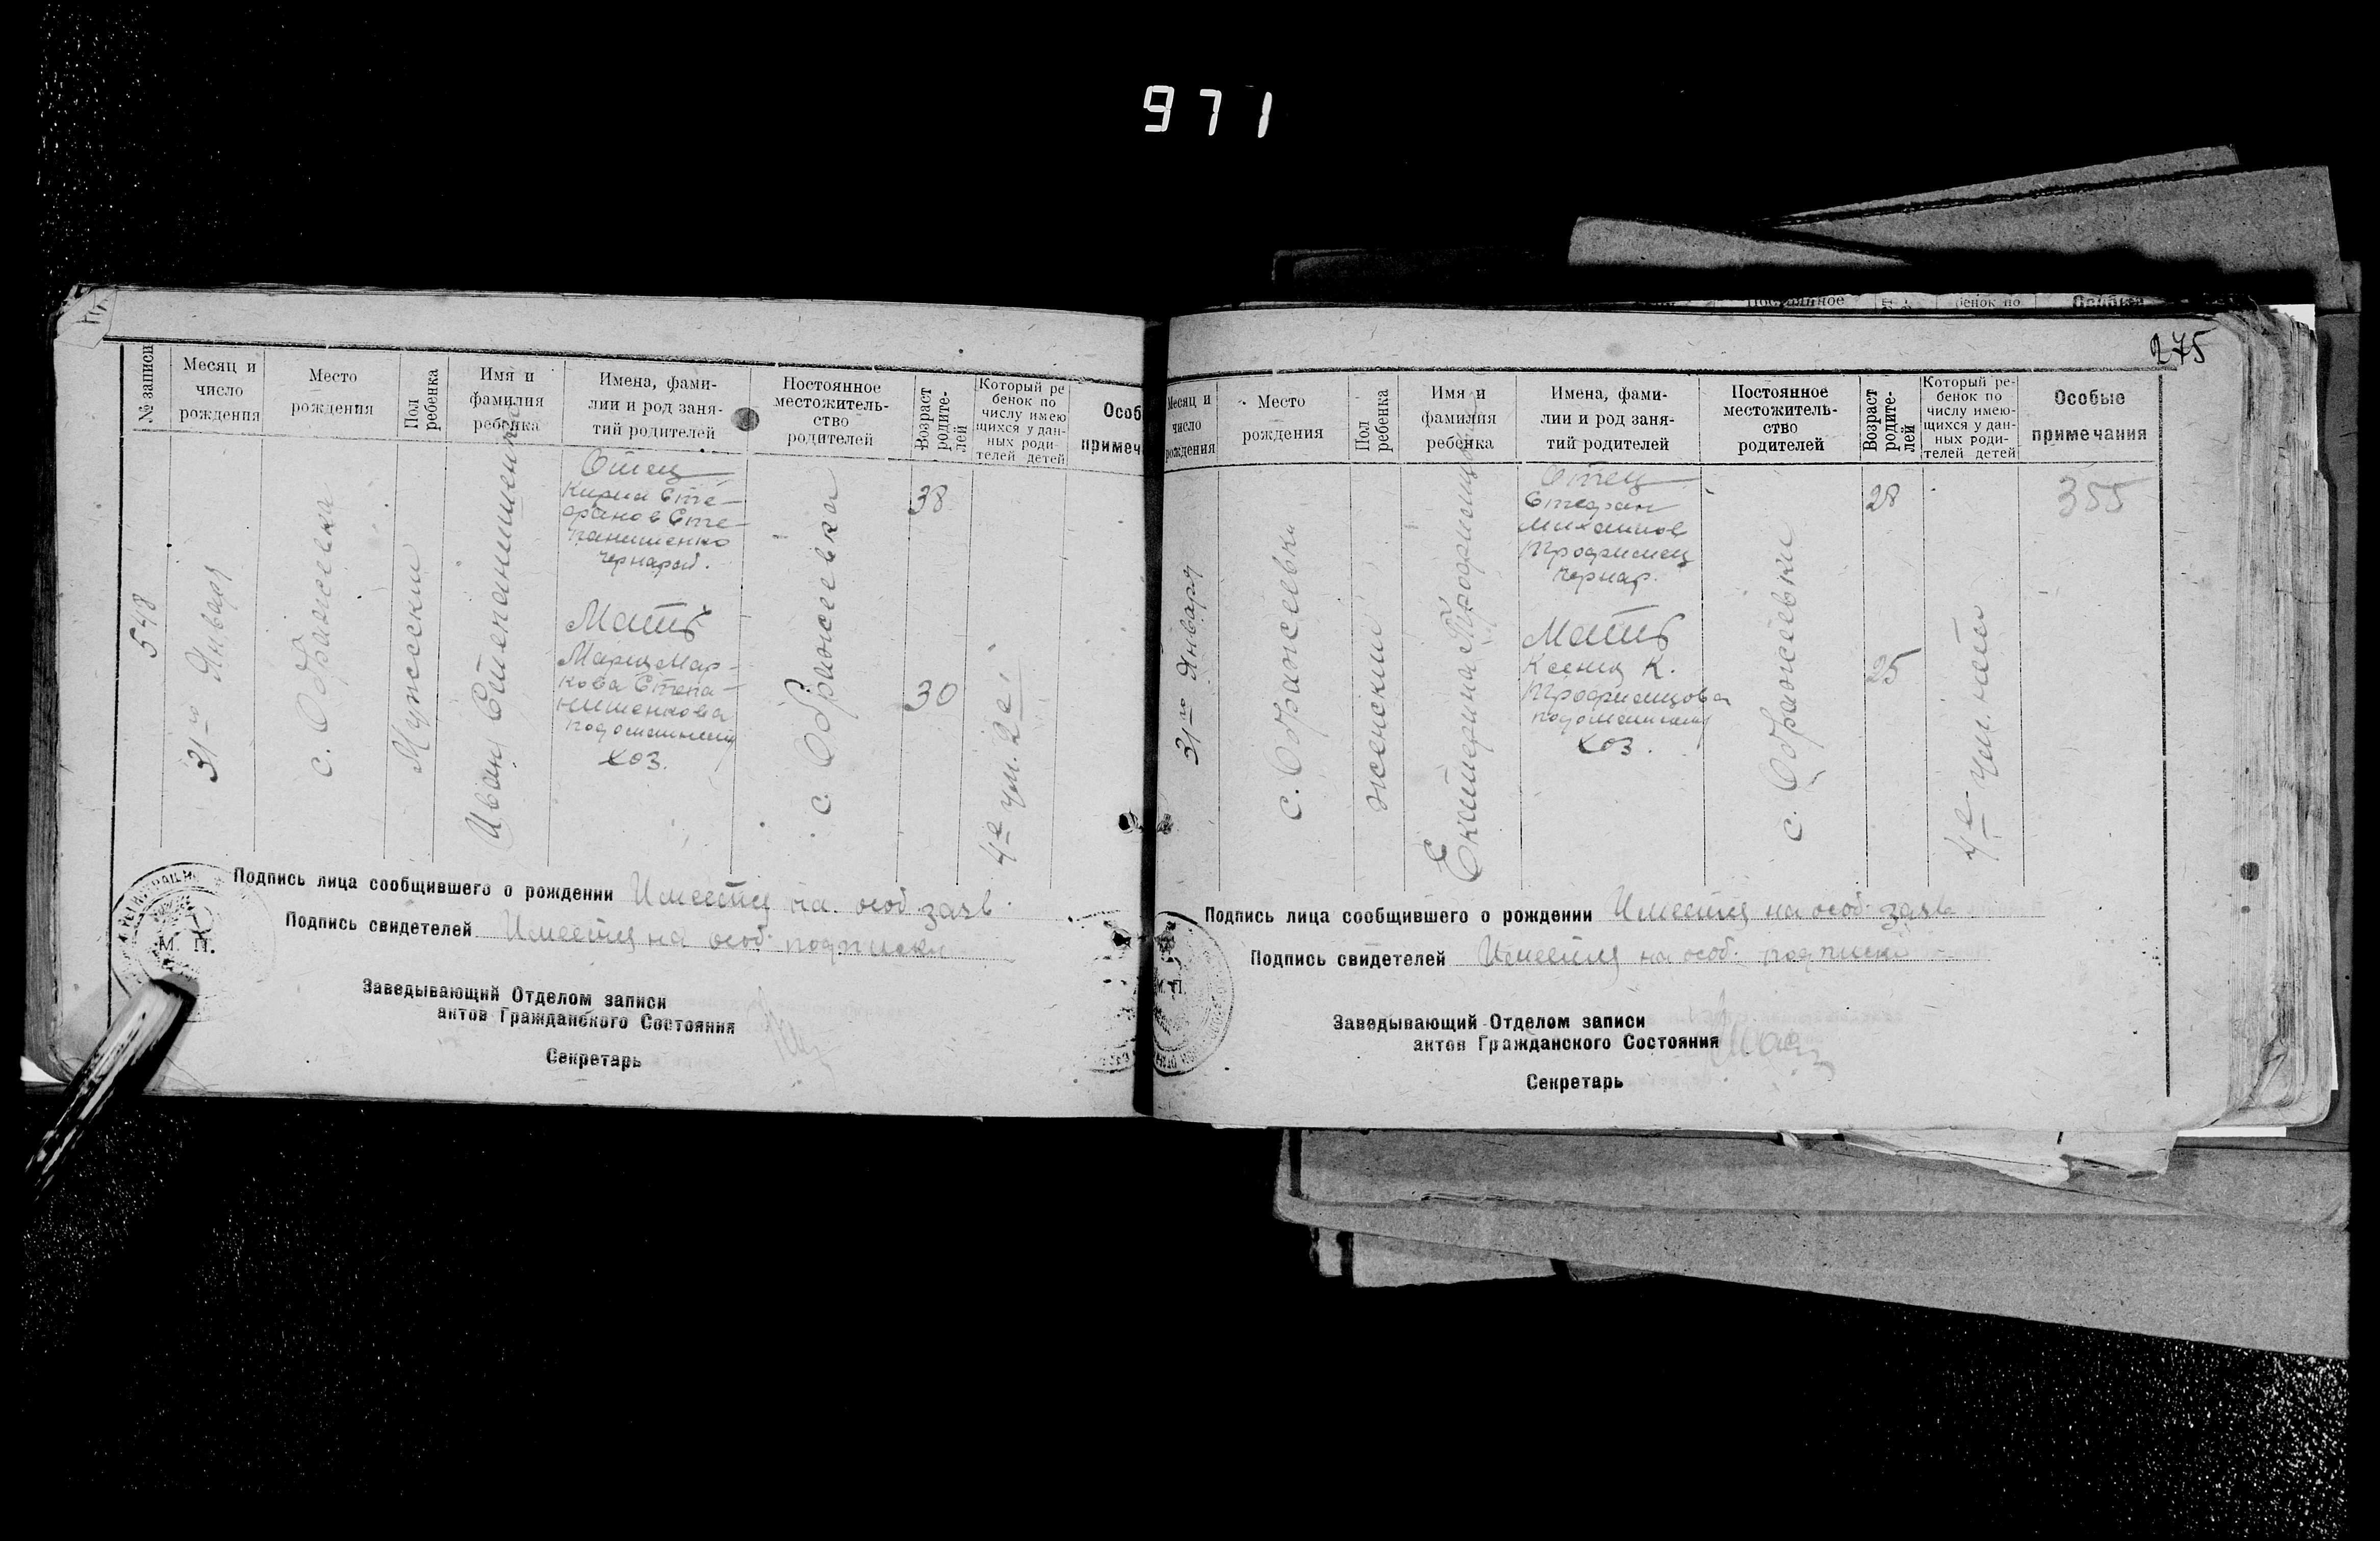 971
№ записи
Месяц и число рождения
Место рождения
Пол ребенка
Имя и фамилия ребенка
Имена, фами-
лии и род заня-
тий родителей
Постоянное
местожитель-
ство
родителей
Возраст родите-
лей
Который ре
бенок по
числу имею
щихся у дан-
ных роди-
телей детей
Особ
примеч
548
31-го Января
с. Ображеевка
Мужески
Иван Степанишенко
Отец
Кирил Сте-
фанов Сте-
панишенко
Чернараб.
Мать
Мария Мар-
кова Степа-
нишенкова
домашнии
хоз.
с. Ображеевка
38
30
4е
2е
Подпись лица сообщившего о рождении Имеется на особ. заяв.
Подпись свидетелей Имеется на особ. подписки
М. П.
Заведывающий Отделом записи
актов Гражданского Состояния
Секретарь
275
Месяц и
число
рождения
Место
рождения
Пол
ребенка
Имя и
фамилия
ребенка
Имена, фами-
лии и род заня-
тий родителей
Постоянное
местожитель-
ство
родителей
Возраст
родите-
лей
Который ре-
бенок по
числу имею-
щихся у дан-
ных роди-
телей детей
Особые
примечания
31-го Января
с. Ображеевка
женски
Екатерина Трофимец
Отец
Стефан
Михайлов
Трофимец
Чернар.
Мать
Ксения К.
Трофимцова
домашнии
хоз.
с. Ображеевки
28
25
355
Подпись лица сообщившего о рождении Имеется на особ. заяв
Подпись свидетелей Имеется на особ. подписки
М. П.
Заведывающий Отделом записи
актов Гражданского Состояния
Секретарь